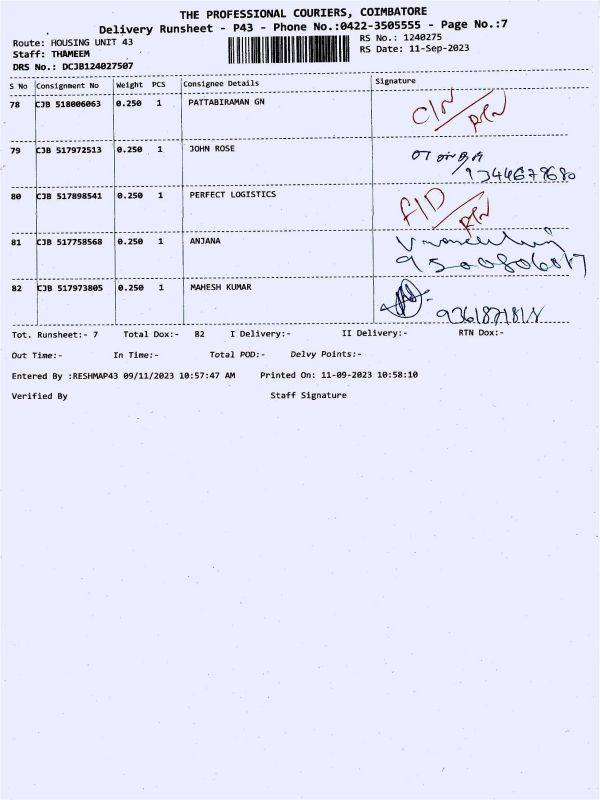 THE PROFESSIONAL COURIERS, COIMBATORE
Delivery Runsheet - P43 - Phone No.:0422-3505555 - Page No.:7
Route: HOUSING UNIT 43
RS No.: 1240275
Staff: THAMEEM
RS Date: 11-Sep-2023
DRS No.: DCJB124027507
S No Consignment No Weight PCS Consignee Details Signature
78 CJB 518006063 0.250 1 PATTABIRAMAN GN
C/N/RTN
79 CJB 517972513 0.250 1 JOHN ROSE
9344678680
80 CJB 517898541 0.250 1 PERFECT LOGISTICS
F/D/RTN
81 CJB 517758568 0.250 1 ANJANA
82 CJB 517973805 0.250 1 MAHESH KUMAR
Tot. Runsheet:- 7 Total Dox:- 82 I Delivery:- II Delivery:- RTN Dox:-
Out Time:- In Time:- Total POD:- Delvy Points:-
Entered By :RESHMAP43 09/11/2023 10:57:47 AM Printed On: 11-09-2023 10:58:10
Verified By Staff Signature